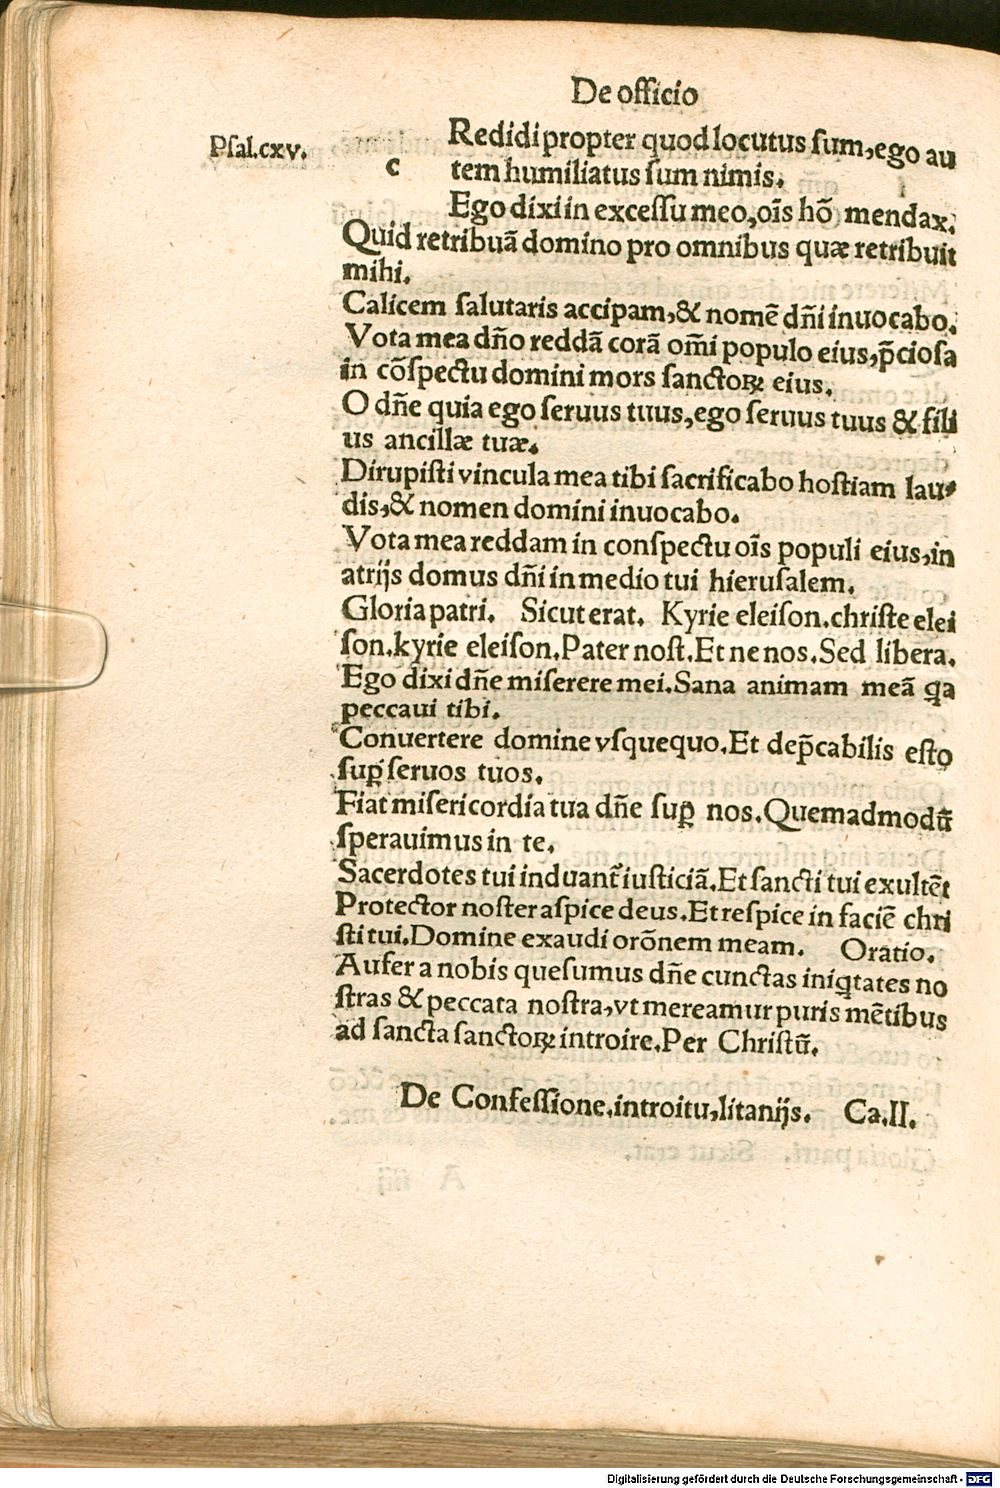 De officio
Pſal.cxv.
c
Redidi propter quod locutus ſum, ego au
tem humiliatus ſum nimis.
Ego dixi in exceſſu meo, oīs hō mendax.
Quid retribuā domino pro omnibus quæ retribuit
mihi.
Calicem ſalutaris accipam, & nomē dñi inuocabo.
Vota mea dño reddā corā om̄i populo eius, p̄cioſa
in cōſpectu domini mors ſanctoꝝ eius.
O dñe quia ego ſeruus tuus, ego ſeruus tuus & fili
us ancillæ tuæ.
Dirupiſti vincula mea tibi ſacrificabo hoſtiam lau⸗
dis, & nomen domini inuocabo.
Vota mea reddam in conſpectu oīs populi eius, in
atrijs domus dñi in medio tui hieruſalem.
Gloria patri. Sicut erat. Kyrie eleiſon. chriſte elei
ſon. kyrie eleiſon. Pater noſt. Et ne nos. Sed libera.
Ego dixi dñe miſerere mei. Sana animam meā ꝗa
peccaui tibi.
Conuertere domine vſquequo. Et dep̄cabilis eſto
ſuꝑ ſeruos tuos.
Fiat miſericordia tua dñe ſuꝑ nos. Quemadmodū
ſperauimus in te.
Sacerdotes tui induant̄ iuſticiā. Et ſancti tui exultēt
Protector noſter aſpice deus. Et reſpice in faciē chri
ſti tui. Domine exaudi orōnem meam. Oratio.
Aufer a nobis queſumus dñe cunctas iniꝗtates no
ſtras & peccata noſtra, vt mereamur puris mētibus
ad ſancta ſanctoꝝ introire. Per Chriſtū.
De Confeſſione, introitu, litanijs. Ca. II.
Digitalisierung gefördert durch die Deutsche Forschungsgemeinschaft - DFG